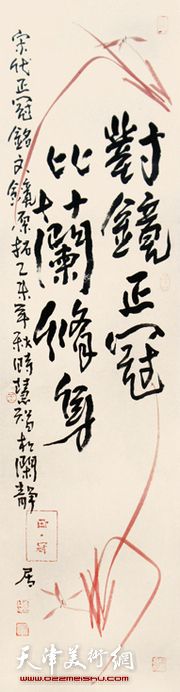 對鏡正冠
比蘭脩身
宋代正冠銘文鏡原拓乙未年秋時慧珺於蘭靜
居
正冠
天津美術網
www.022meishu.com